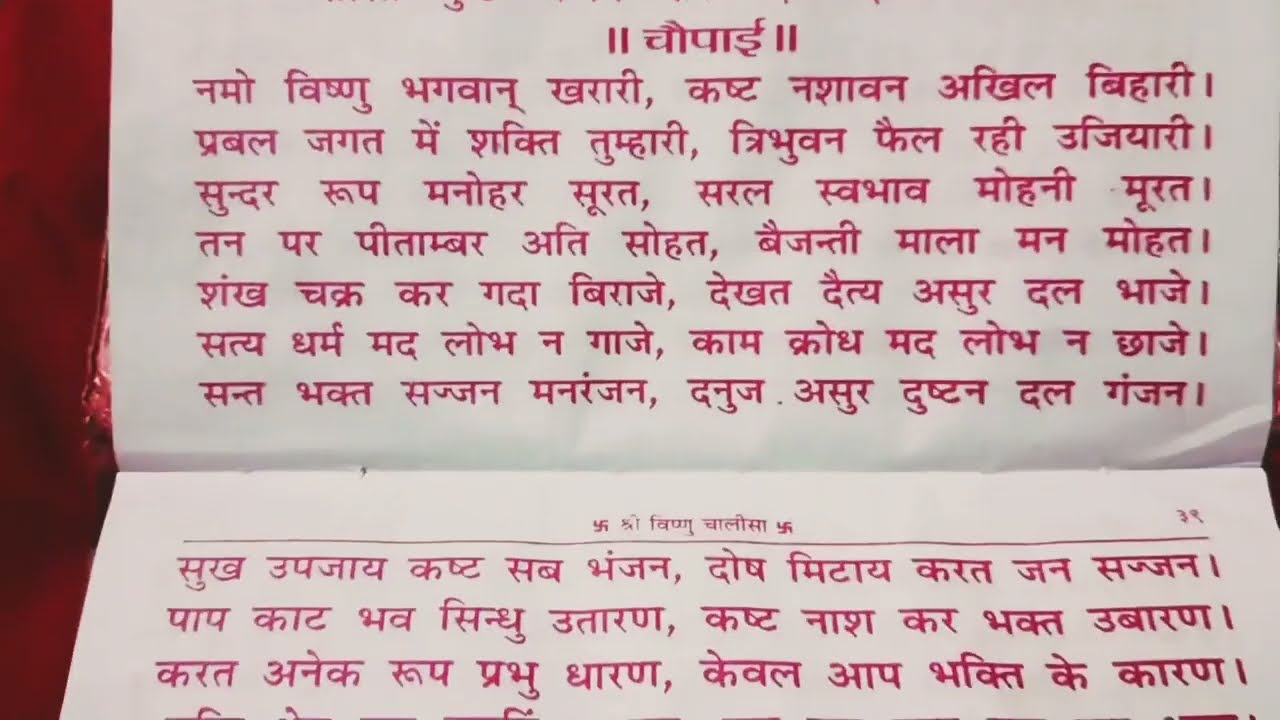 ॥ चौपाई ॥
नमो विष्णु भगवान् खरारी, कष्ट नशावन अखिल बिहारी।
प्रबल जगत में शक्ति तुम्हारी, त्रिभुवन फैल रही उजियारी।
सुन्दर रूप मनोहर सूरत, सरल स्वभाव मोहनी मूरत।
तन पर पीताम्बर अति सोहत, बैजन्ती माला मन मोहत।
शंख चक्र कर गदा बिराजे, देखत दैत्य असुर दल भाजे।
सत्य धर्म मद लोभ न गाजे, काम क्रोध मद लोभ न छाजे।
सन्त भक्त सज्जन मनरंजन, दनुज असुर दुष्टन दल गंजन।
卐 श्री विष्णु चालीसा 卐 ३९
सुख उपजाय कष्ट सब भंजन, दोष मिटाय करत जन सज्जन।
पाप काट भव सिन्धु उतारण, कष्ट नाश कर भक्त उबारण।
करत अनेक रूप प्रभु धारण, केवल आप भक्ति के कारण।